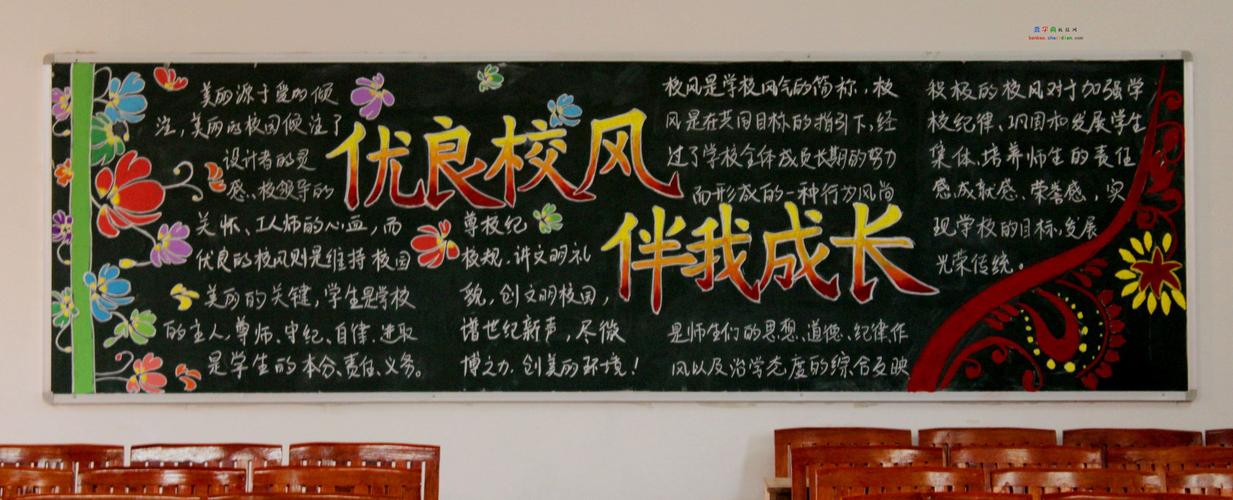 优良校风
伴我成长
美丽源于爱的倾
注，美丽的校园倾注了
设计者的灵
感、校领导的
关怀、工人师的心血，而
优良的校风则是维持校园
美丽的关键，学生是学校
的主人，尊师、守纪、自律、进取
是学生的本分、责任、义务。
尊校纪
校规，讲文明礼
貌，创文明校园，
增世纪新声，尽微
博之力，创美丽环境！
校风是学校风气的简称，校
风是在共同目标的指引下，经
过了学校全体成员长期的努力
而形成的一种行为风尚
是师生们的思想、道德、纪律、作
风以及治学态度的综合反映
积极的校风对于加强学
校纪律、巩固和发展学生
集体、培养师生的责任
感、成就感、荣誉感，实
现学校的目标、发展
光荣传统。